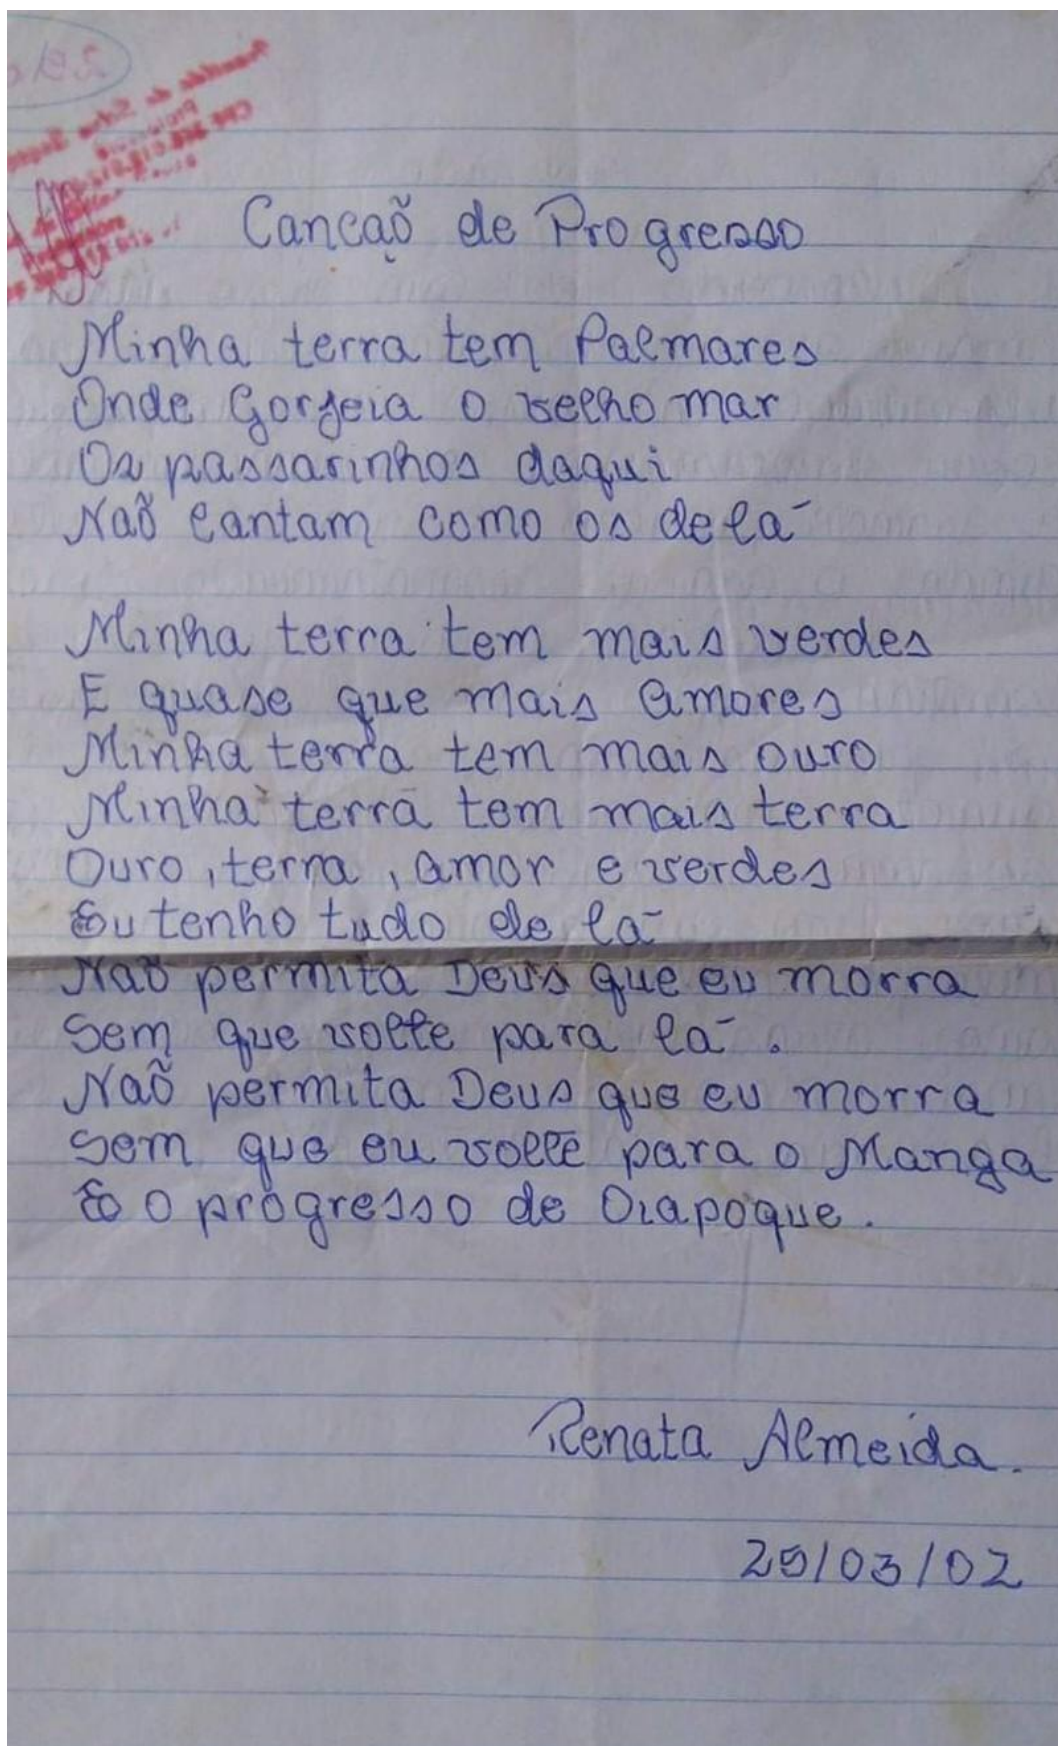 Canção de Progresso
Minha terra tem Palmares
Onde Gorjeia o velho mar
Os passarinhos daqui
Não cantam como os de lá
Minha terra tem mais verdes
E quase que mais amores
Minha terra tem mais ouro
Minha terra tem mais terra
Ouro, terra, amor e verdes
Eu tenho tudo de lá
Não permita Deus que eu morra
Sem que volte para lá.
Não permita Deus que eu morra
Sem que eu volte para o Manga
E o progresso de Oiapoque.
Renata Almeida.
25/03/02